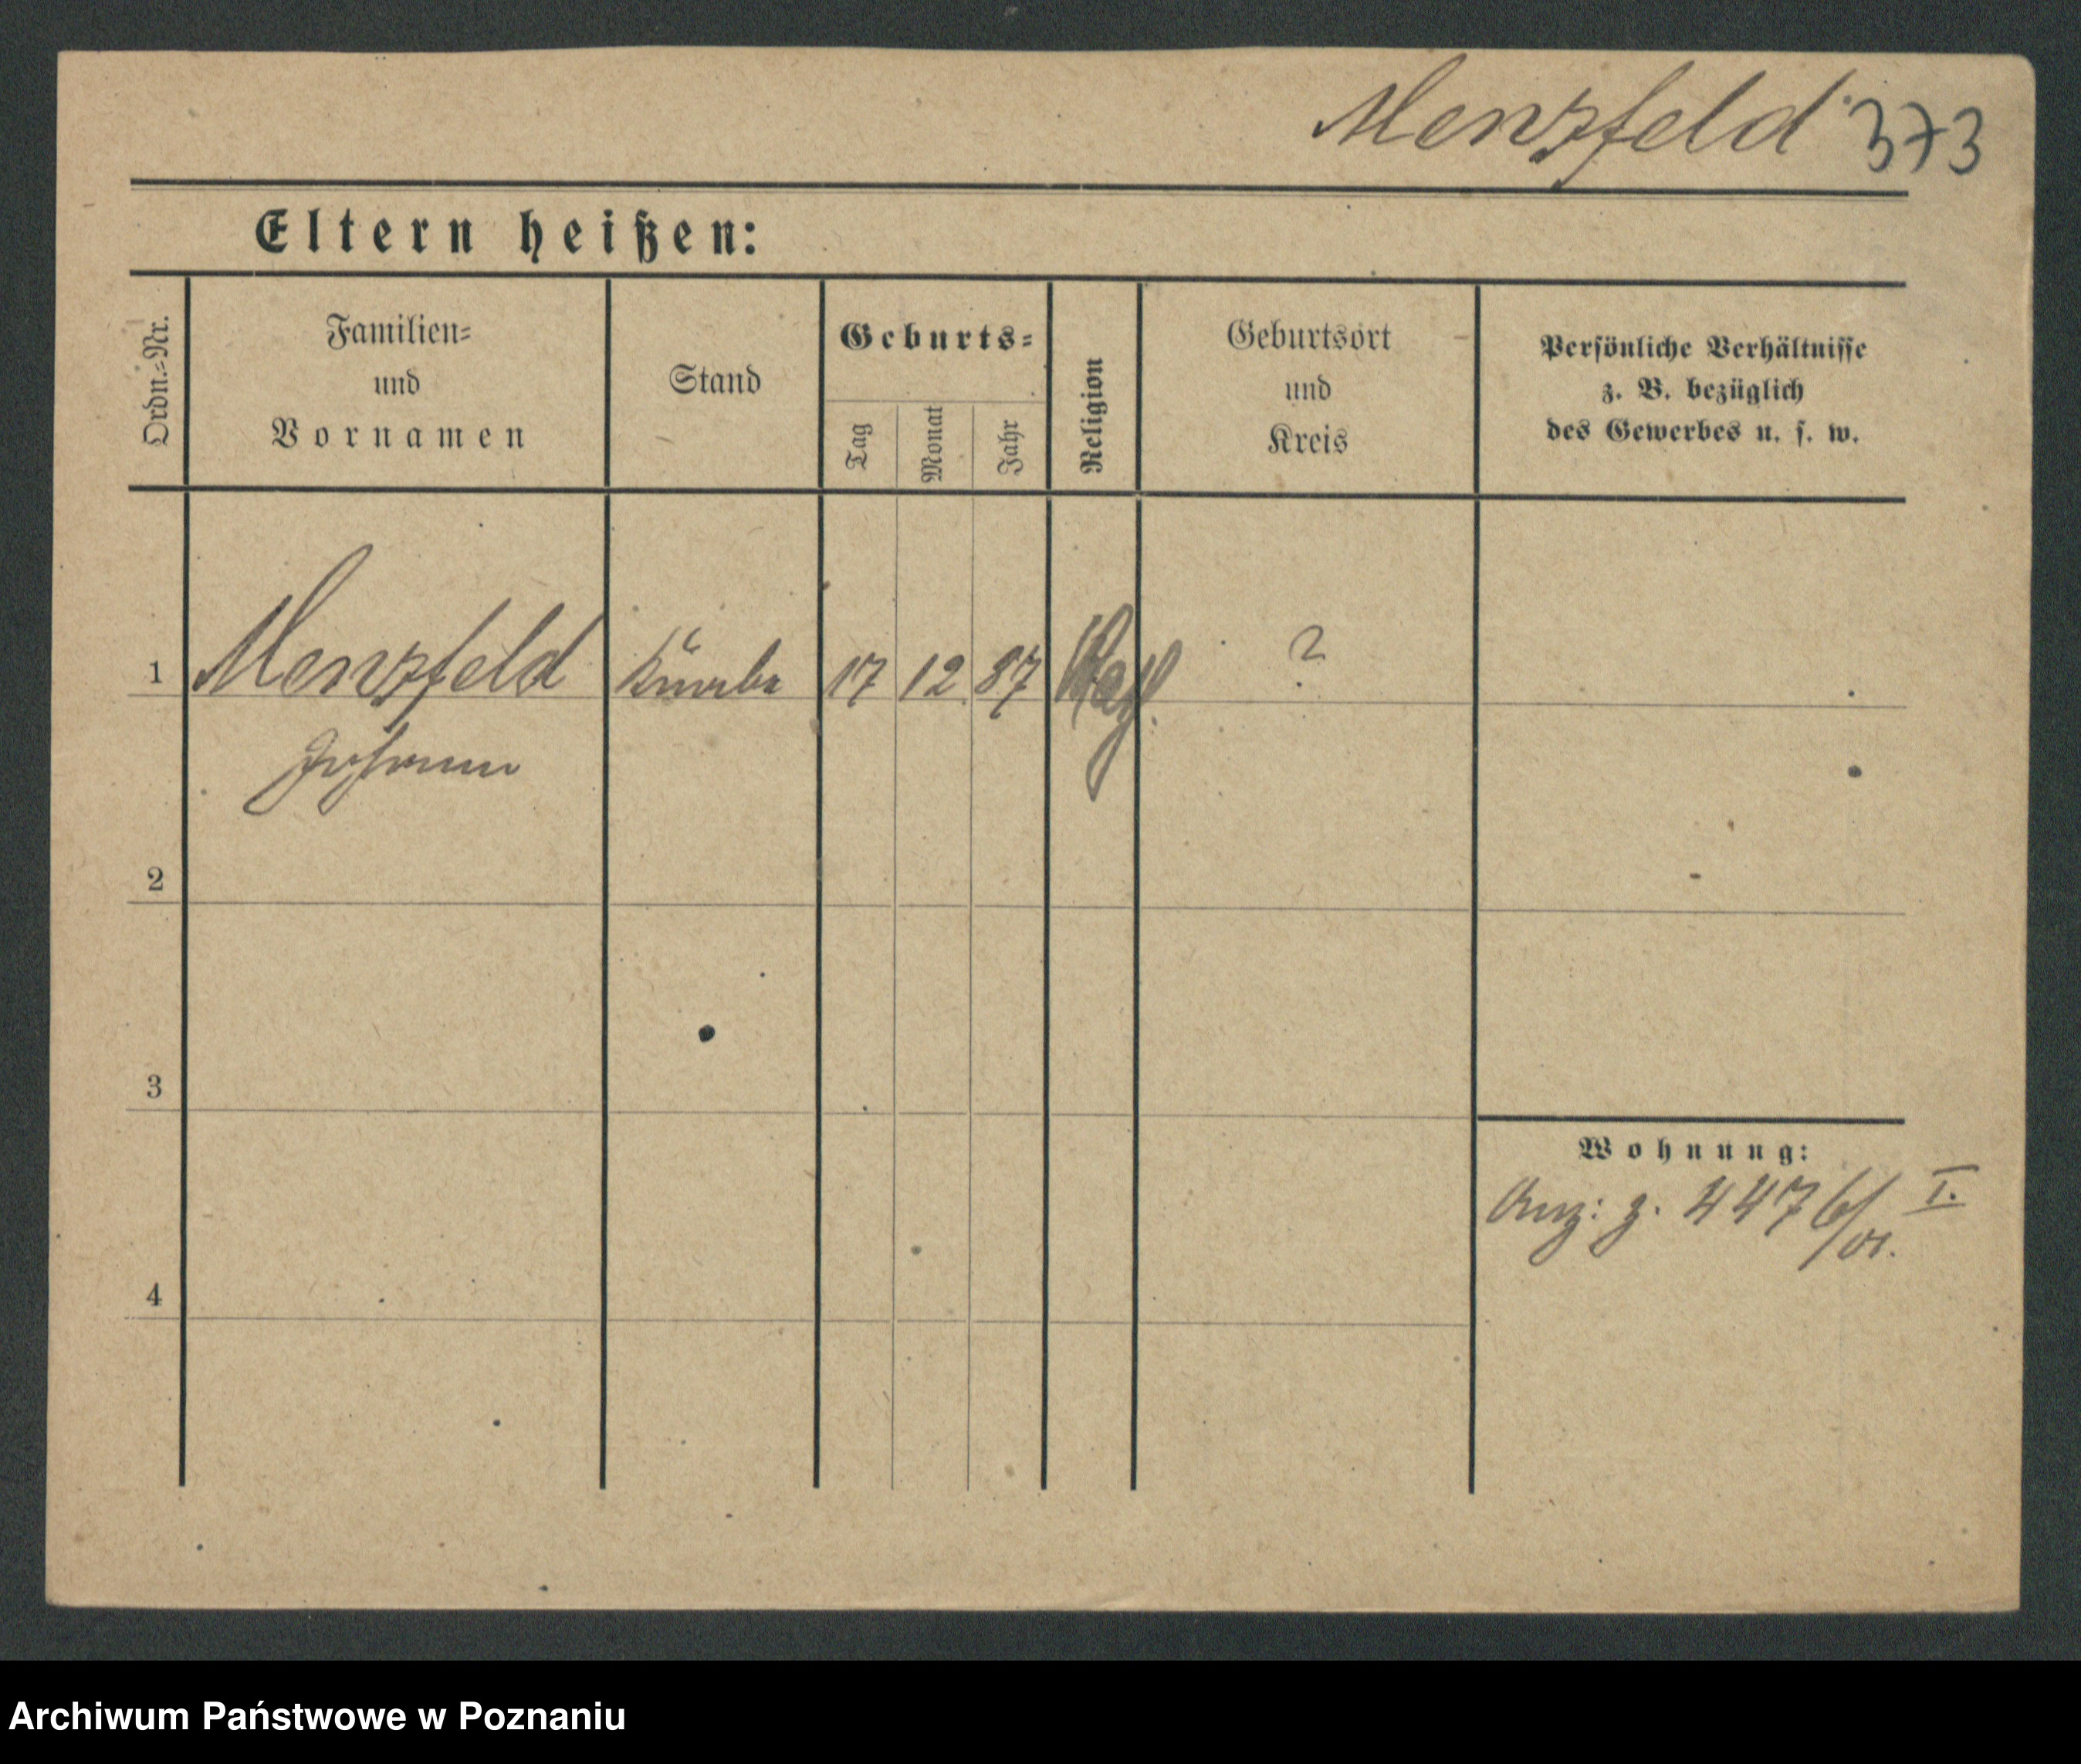 Menzfeld 373
Eltern heißen:
Ordn.-Nr.
Familien-
und
Vornamen
Stand
Geburts-
Tag
Monat
Jahr
Religion
Geburtsort
und
Kreis
Persönliche Verhältnisse
z. B. bezüglich
des Gewerbes u. s. w.
1 Menzfeld 17 12 87 ?
Johann
2
3
4
Wohnung:
z. 4476/01. I.
Archiwum Państwowe w Poznaniu